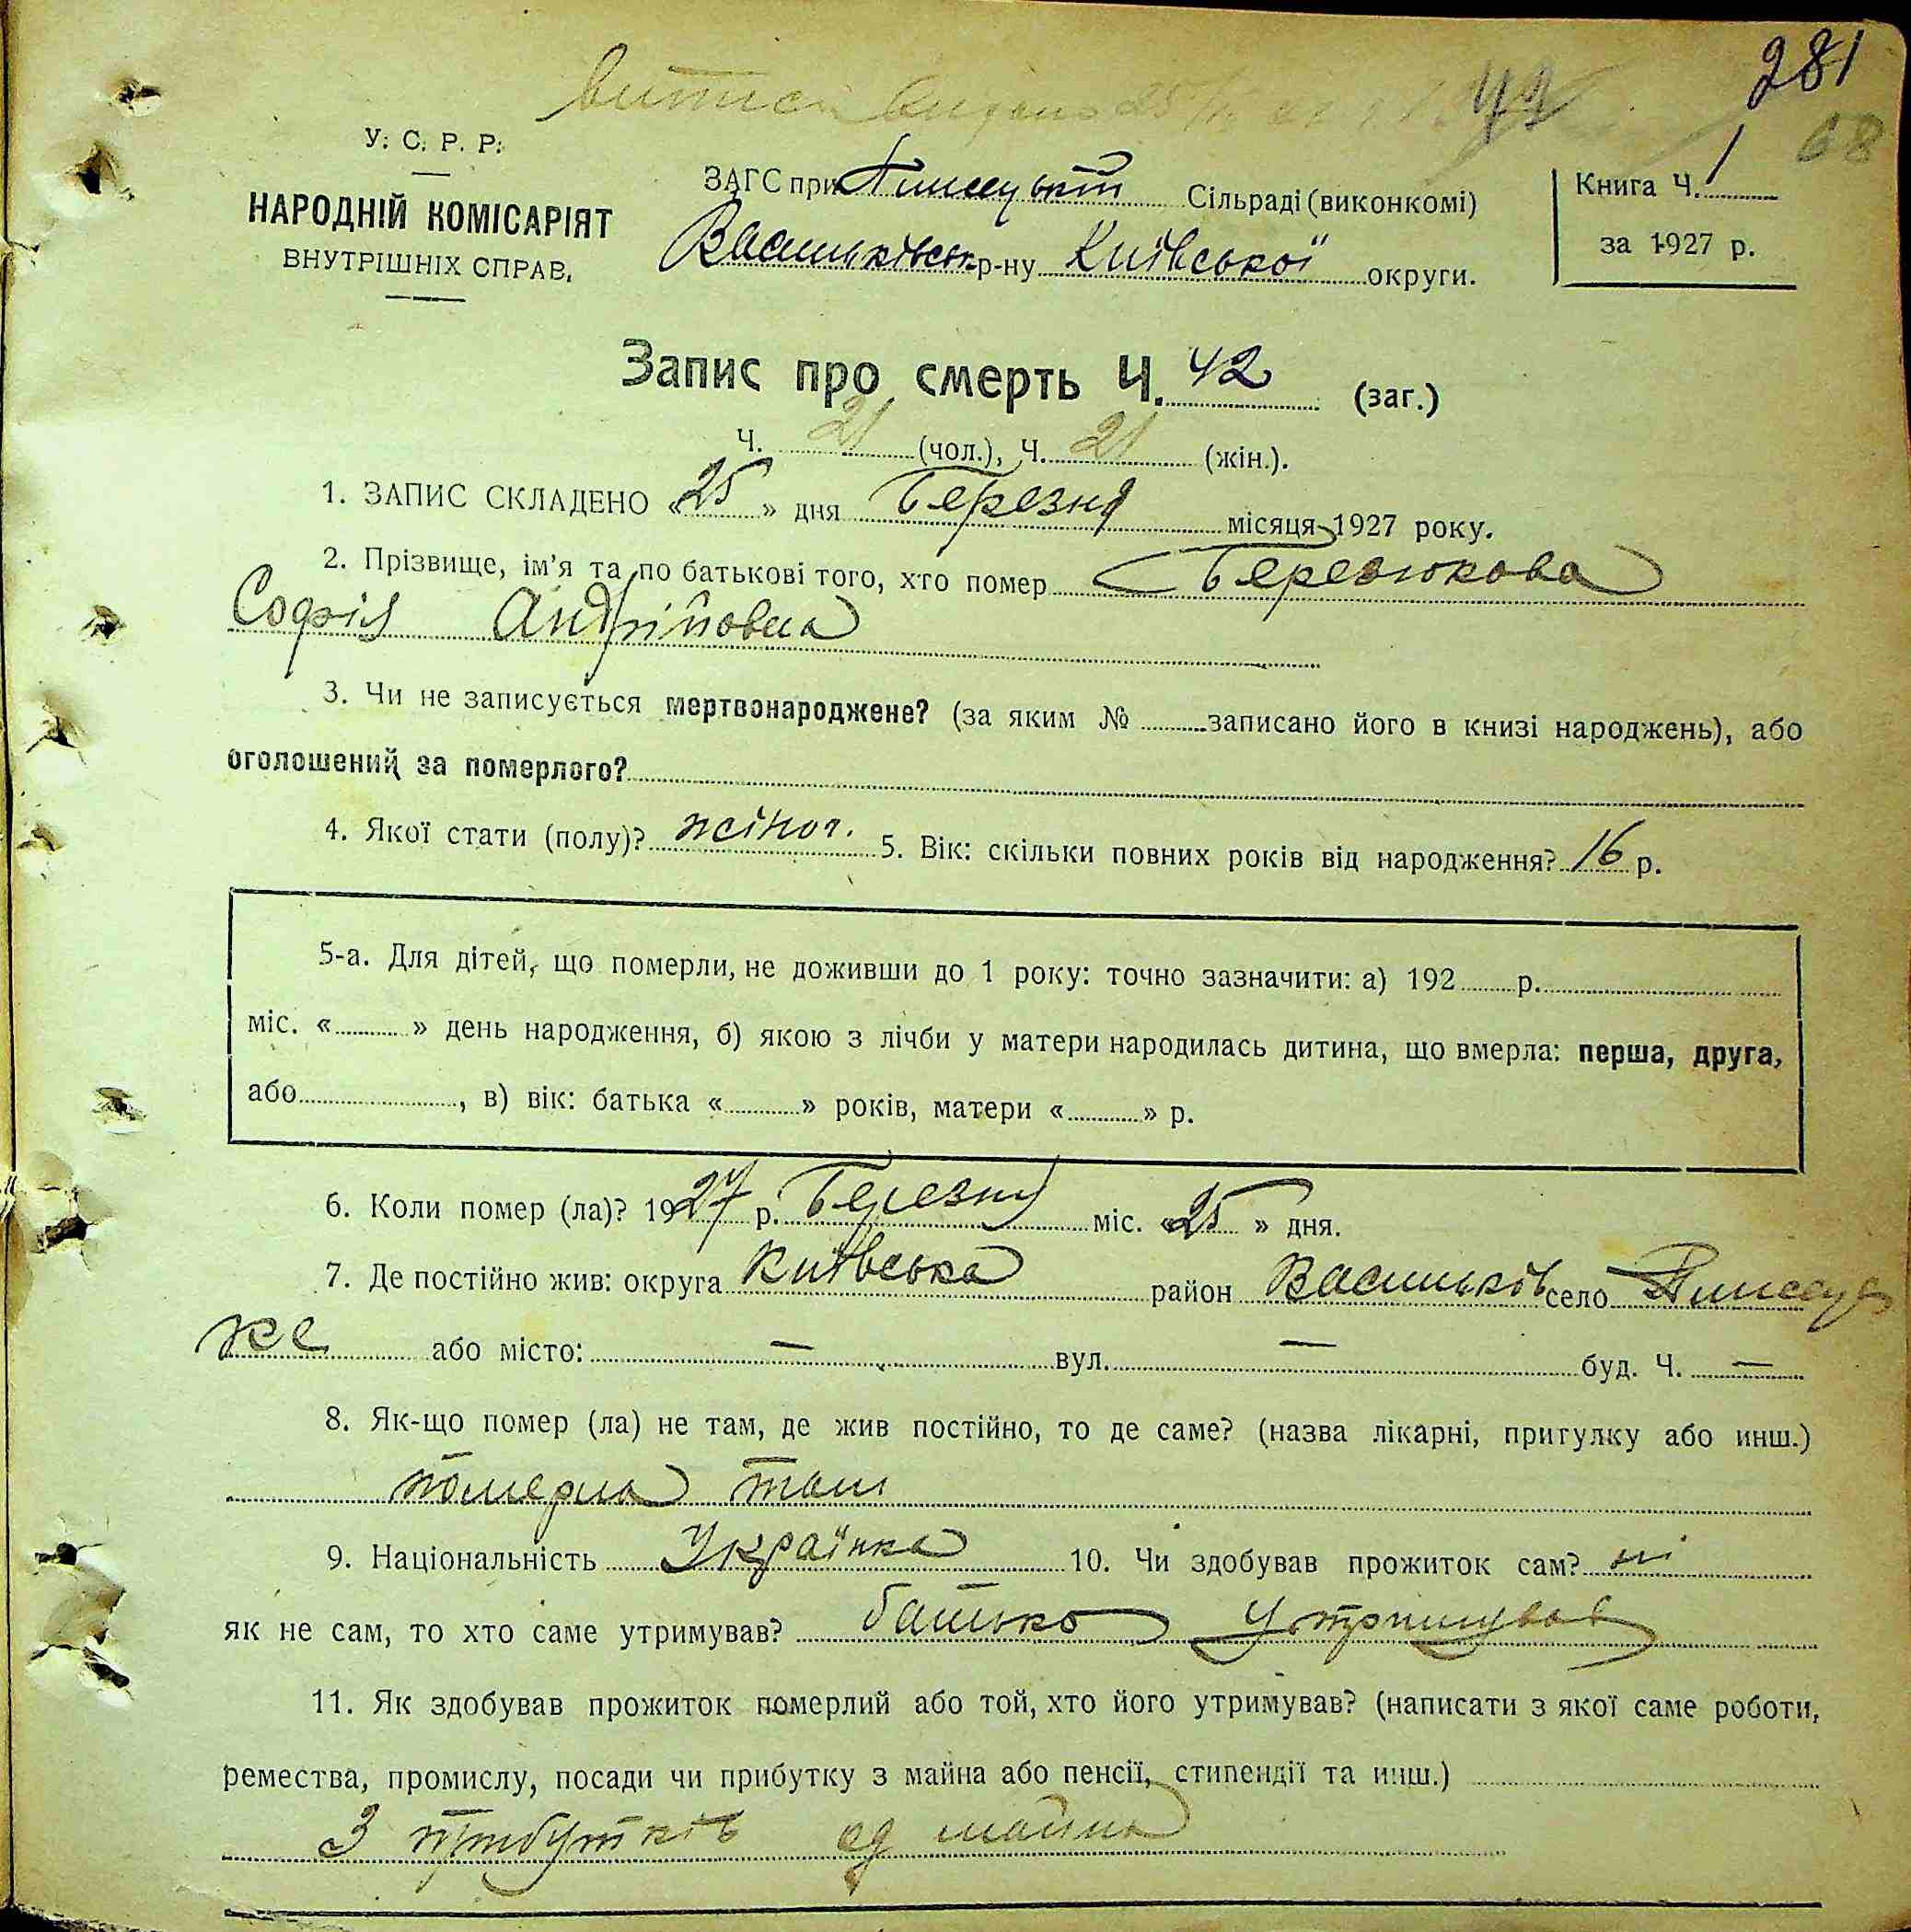 281
42
68
У. С. Р. Р.
НАРОДНІЙ КОМІСАРІЯТ
ВНУТРІШНІХ СПРАВ.
ЗАГС при Сільраді (виконкомі)
Васильківськ. р-ну Київської округи.
Книга Ч. 1
за 1927 р.
Запис про смерть Ч. 42 (заг.)
Ч. 21 (чол.), Ч. 21 (жін.).
1. ЗАПИС СКЛАДЕНО «25» дня Березня місяця 1927 року.
2. Прізвище, ім'я та по батькові того, хто помер Березюкова
Софія Андрійовна
3. Чи не записується мертвонароджене? (за яким № записано його в книзі народжень), або
оголошений за померлого?
4. Якої стати (полу)? жіноч. 5. Вік: скільки повних років від народження? 16 р.
5-а. Для дітей, що померли, не доживши до 1 року: точно зазначити: а) 192 р.
міс. « » день народження, б) якою з лічби у матери народилась дитина, що вмерла: перша, друга,
або , в) вік: батька « » років, матери « » р.
6. Коли помер (ла)? 1927 р. Березня міс. «25» дня.
7. Де постійно жив: округа Київська район Васильків село
ке або місто: — вул. — буд. Ч. —
8. Як-що помер (ла) не там, де жив постійно, то де саме? (назва лікарні, пригулку або инш.)
померла там
9. Національність Українка 10. Чи здобував прожиток сам? ні
як не сам, то хто саме утримував? батько утримував
11. Як здобував прожиток померлий або той, хто його утримував? (написати з якої саме роботи,
ремества, промислу, посади чи прибутку з майна або пенсії, стипендії та инш.)
З прибутків од майна